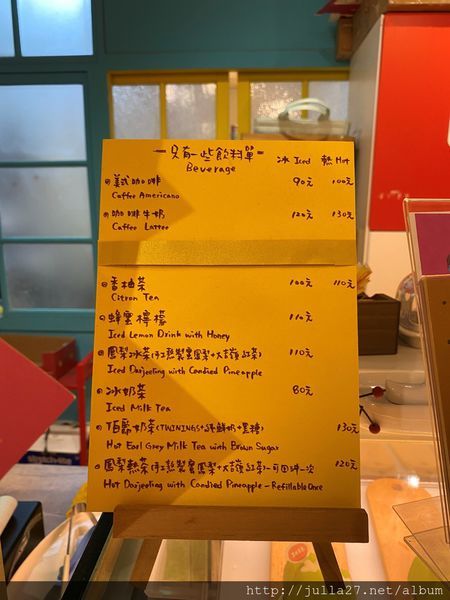 一只有一些飲料單一
冰 Iced 熱 Hot
Beverage
美式咖啡 90元 100元
Caffee Americano
咖啡牛奶 120元 130元
Caffee Lattee
香柚茶 100元 110元
Citron Tea
蜂蜜檸檬 110元
Iced Lemon Drink with Honey
鳳梨冰茶(手工熬製蜜鳳梨+大吉嶺紅茶) 110元
Iced Darjeeling with Candied Pineapple
冰奶茶 80元
Iced Milk Tea
伯爵奶茶(TWININGS+純鮮奶+黑糖) 130元
Hot Earl Grey Milk Tea with Brown Sugar
鳳梨熱茶(手工熬製蜜鳳梨+大吉嶺紅茶)-可回沖一次 120元
Hot Darjeeling with Candied Pineapple - Refillable Once
http://julla27.net/album